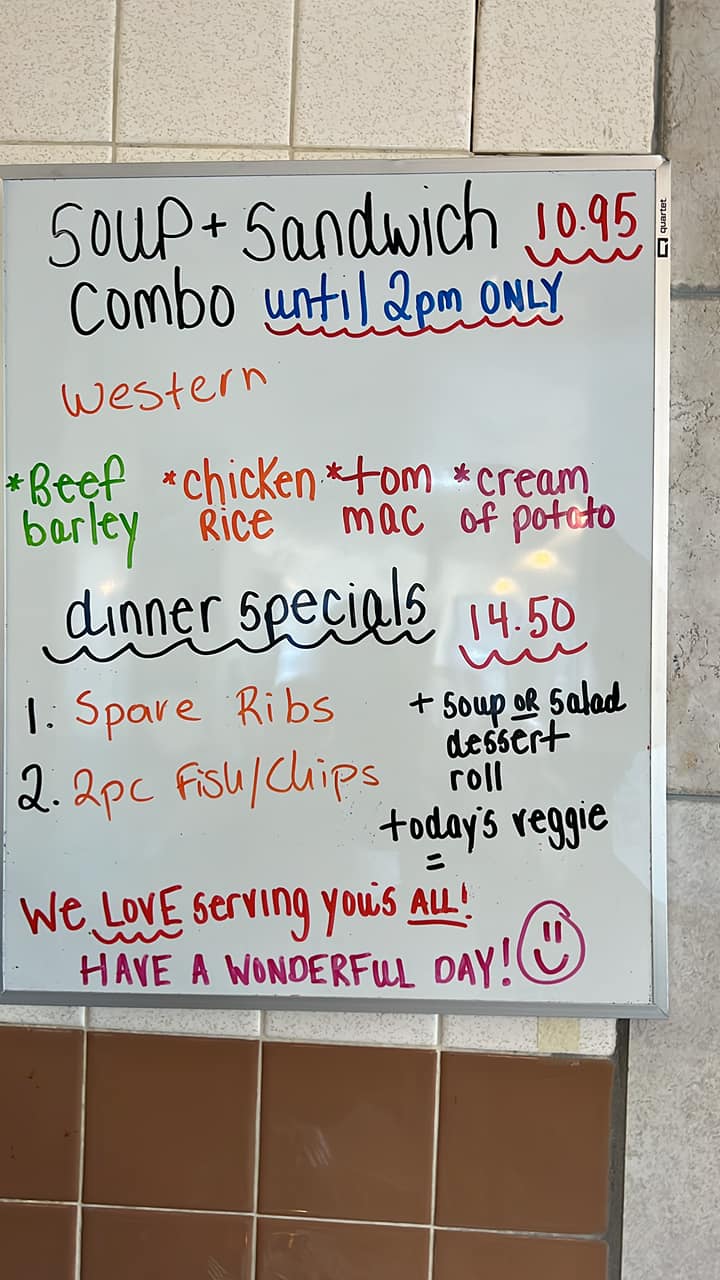 Soup + Sandwich 10.95
Combo until 2pm ONLY
quartet
Western
*Beef *chicken *tom *cream
barley Rice mac of potato
dinner specials 14.50
1. Spare Ribs + Soup OR Salad
dessert
roll
2. 2pc Fish/Chips
today's veggie
=
We LOVE serving you's ALL!
HAVE A WONDERFUL DAY!